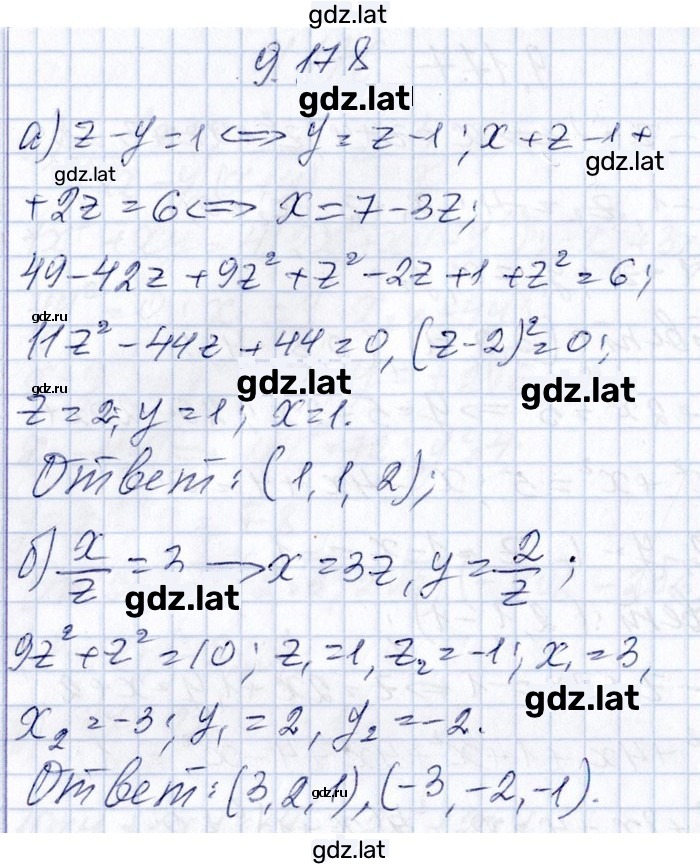 gdz.lat
9.178
gdz.lat
а) z - y = 1 <=> y = z - 1; x + z - 1 +
gdz.lat
gdz.lat
+ 2z = 6 <=> x = 7 - 3z;
49 - 42z + 9z² + z² - 2z + 1 + z² = 6;
gdz.ru
11z² - 44z + 44 = 0, (z - 2)² = 0;
gdz.lat
gdz.lat
gdz.ru
z = 2; y = 1; x = 1.
Ответ: (1, 1, 2);
б) x/z = 3 → x = 3z, y = 2/z;
gdz.lat
9z² + z² = 10; z₁ = 1, z₂ = -1; x₁ = 3,
gdz.lat
x₂ = -3; y₁ = 2, y₂ = -2.
Ответ: (3, 2, 1), (-3, -2, -1).
gdz.ru
gdz.lat